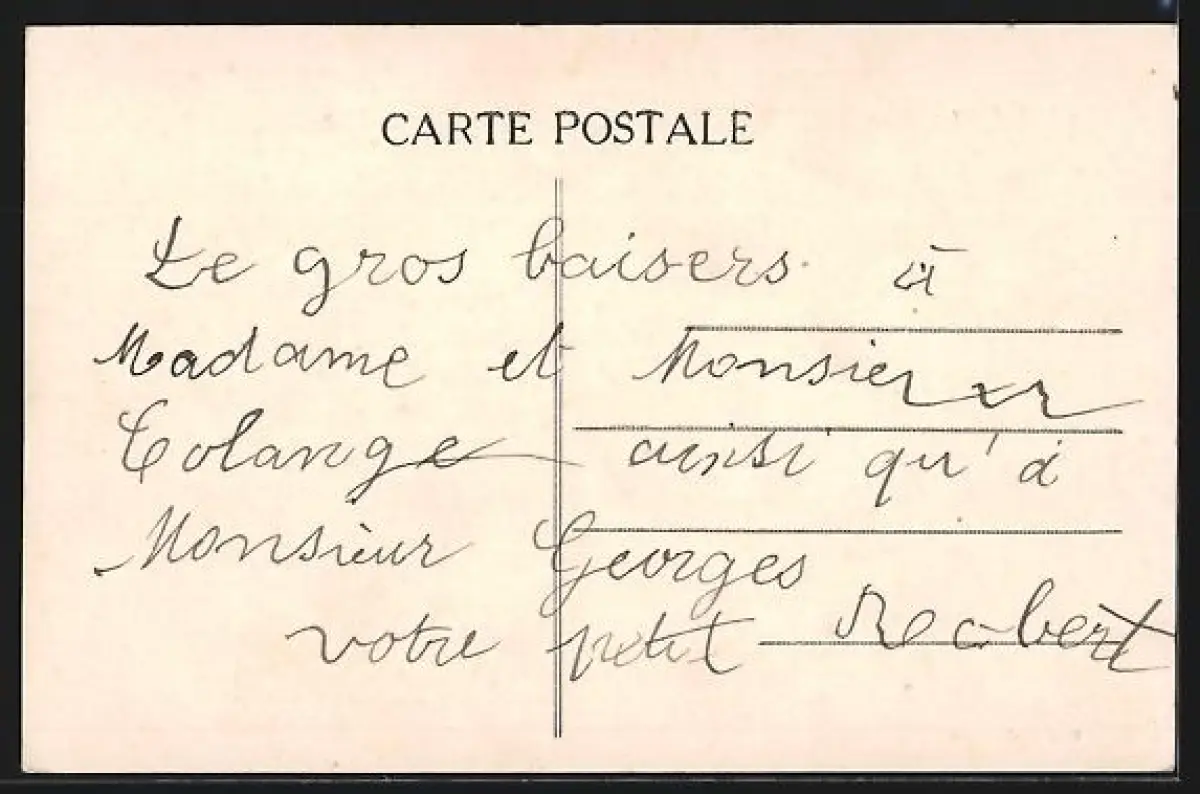 CARTE POSTALE
Le gros baisers à
Madame et Monsieur
Colange ainsi qu'à
Monsieur Georges
votre petit Robert